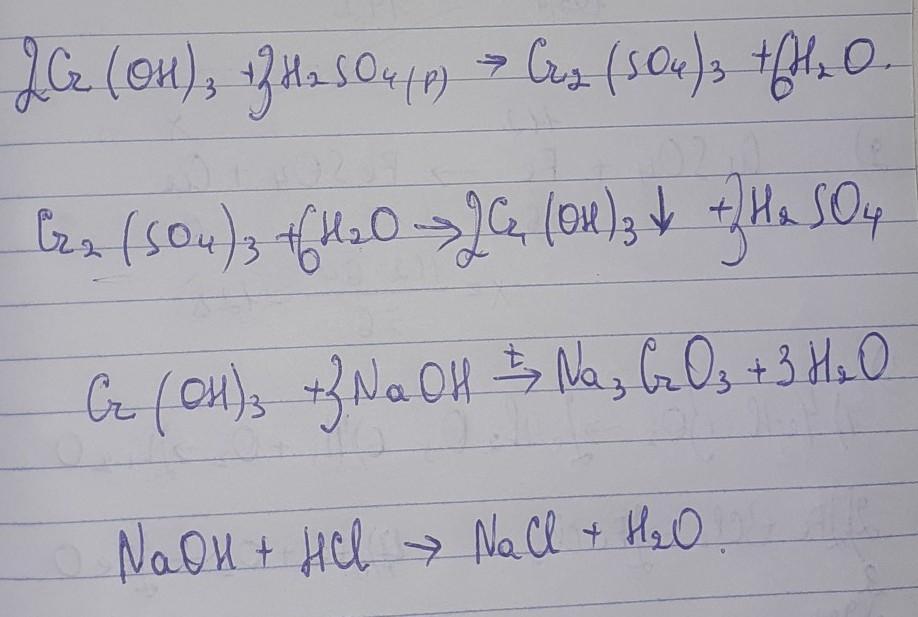 2Cr(OH)₃ + 3H₂SO₄(р) → Cr₂(SO₄)₃ + 6H₂O.
Cr₂(SO₄)₃ + 6H₂O → 2Cr(OH)₃↓ + 3H₂SO₄
Cr(OH)₃ + 3NaOH →ᵗ Na₃CrO₃ + 3H₂O
NaOH + HCl → NaCl + H₂O.